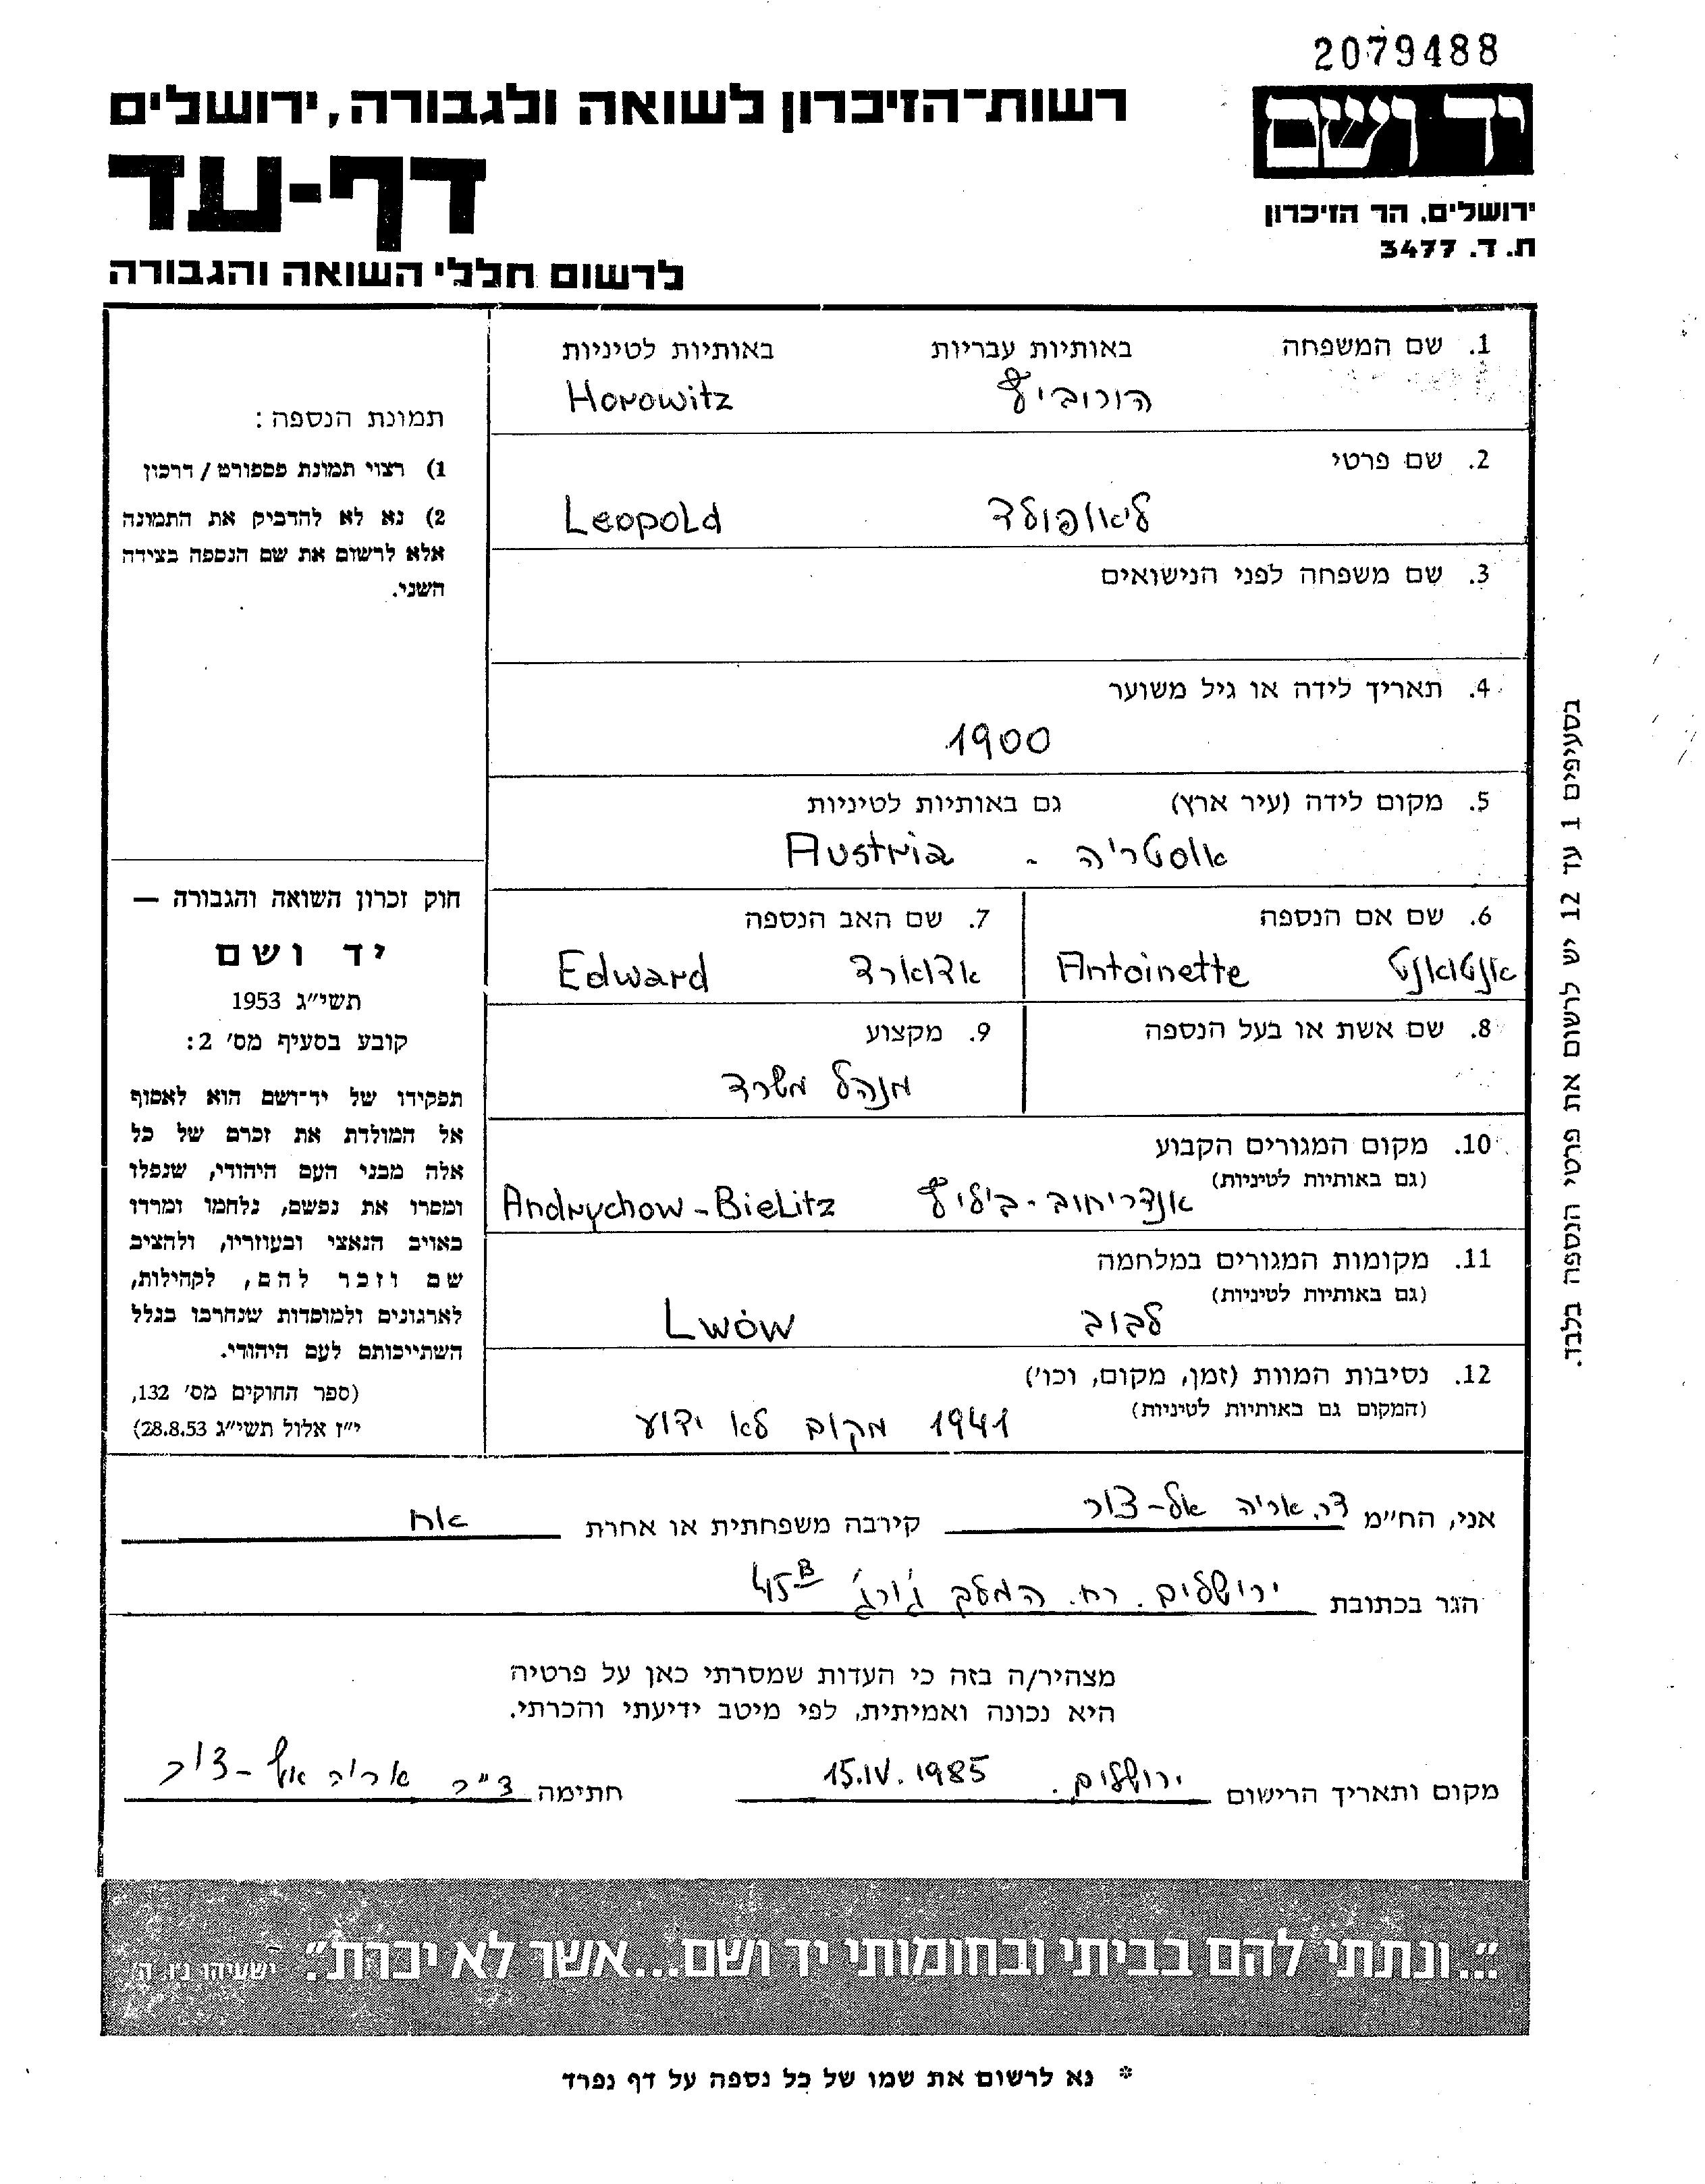 2079488
יד ושם
רשות־הזיכרון לשואה ולגבורה, ירושלים
דף-עד
ירושלים, הר הזיכרון
ת. ד. 3477
לרשום חללי השואה והגבורה
1. שם המשפחה באותיות עבריות באותיות לטיניות
הורוביץ Horowitz
2. שם פרטי
ליאופולד Leopold
3. שם משפחה לפני הנישואים
4. תאריך לידה או גיל משוער
1900
5. מקום לידה (עיר ארץ) גם באותיות לטיניות
אוסטריה - Austria
6. שם אם הנספה 7. שם האב הנספה
אנטואנט Antoinette אדוארד Edward
8. שם אשת או בעל הנספה 9. מקצוע
מנהל משרד
10. מקום המגורים הקבוע
(גם באותיות לטיניות)
אנדריחוב - ביליץ Andrychow - Bielitz
11. מקומות המגורים במלחמה
(גם באותיות לטיניות)
לבוב Lwów
12. נסיבות המוות (זמן, מקום, וכו')
(המקום גם באותיות לטיניות)
1941 מקום לא ידוע
תמונת הנספה:
1) רצוי תמונת פספורט / דרכון
2) נא לא להדביק את התמונה
אלא לרשום את שם הנספה בצידה
השני.
חוק זכרון השואה והגבורה —
יד ושם
תשי"ג 1953
קובע בסעיף מס' 2:
תפקידו של יד־ושם הוא לאסוף
אל המולדת את זכרם של כל
אלה מבני העם היהודי, שנפלו
ומסרו את נפשם, נלחמו ומרדו
באויב הנאצי ובעוזריו, ולהציב
שם וזכר להם, לקהילות,
לארגונים ולמוסדות שנחרבו בגלל
השתייכותם לעם היהודי.
(ספר החוקים מס' 132,
י"ז אלול תשי"ג 28.8.53)
בסעיפים 1 עד 12 יש לרשום את פרטי הנספה בלבד.
אני, הח"מ דר. אריה אל-צור קירבה משפחתית או אחרת אח
הגר בכתובת ירושלים. רח. המלך ג'ורג' 45B
מצהיר/ה בזה כי העדות שמסרתי כאן על פרטיה
היא נכונה ואמיתית, לפי מיטב ידיעתי והכרתי.
מקום ותאריך הרישום ירושלים. 15.IV.1985 חתימה ד"ר אריה אל-צור
"...ונתתי להם בביתי ובחומותי יד ושם...אשר לא יכרת". ישעיהו נ"ו, ה'
* נא לרשום את שמו של כל נספה על דף נפרד